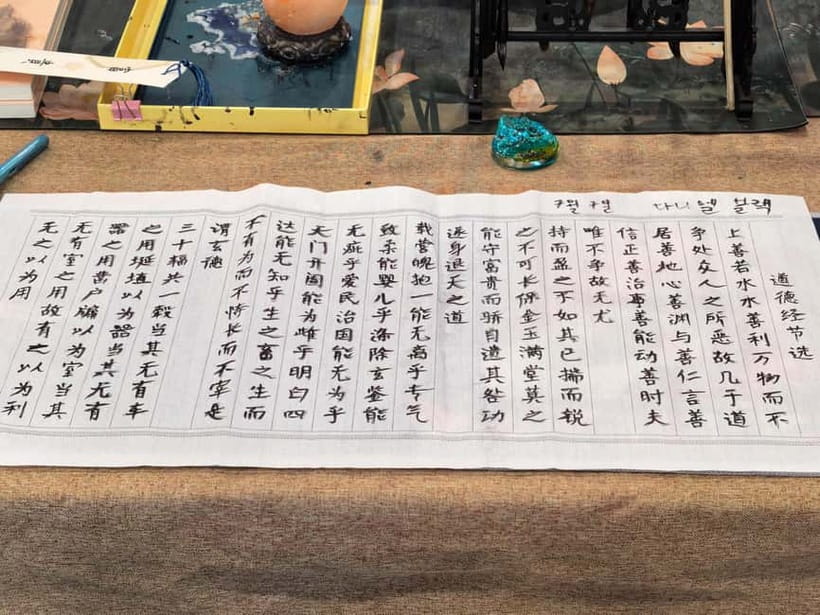 7월 7일 다니엘 블랙
道德经节选
上善若水水善利万物而不
争处众人之所恶故几于道
居善地心善渊与善仁言善
信正善治事善能动善时夫
唯不争故无尤
持而盈之不如其已揣而锐
之不可长保金玉满堂莫之
能守富贵而骄自遗其咎功
遂身退天之道
载营魄抱一能无离乎专气
致柔能婴儿乎涤除玄鉴能
无疵乎爱民治国能无为乎
天门开阖能为雌乎明白四
达能无知乎生之畜之生而
不有为而不恃长而不宰是
谓玄德
三十辐共一毂当其无有车
之用埏埴以为器当其无有
器之用凿户牖以为室当其
无有室之用故有之以为利
无之以为用